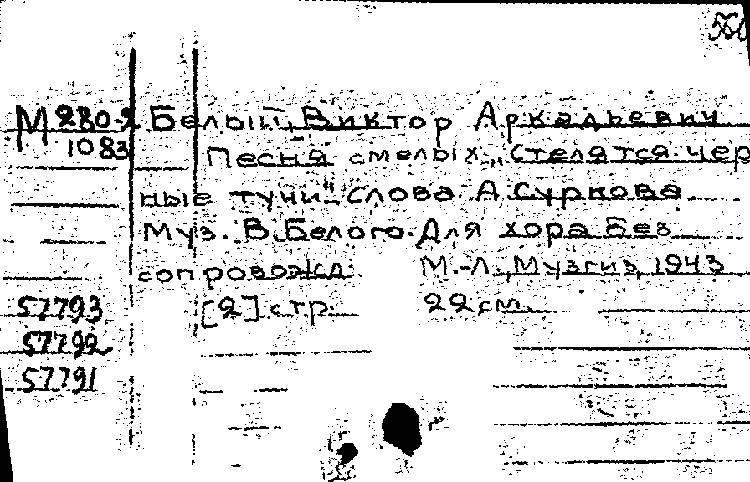 М 280-2 Белый, Виктор Аркадьевич
1083 Песня смелых „Стелятся чер
ные тучи" слова А. Суркова
Муз. В. Белого. Для хора без
сопровожд. М.-Л., Музгиз, 1943
57793 [2] стр. 22 см.
57792
57791